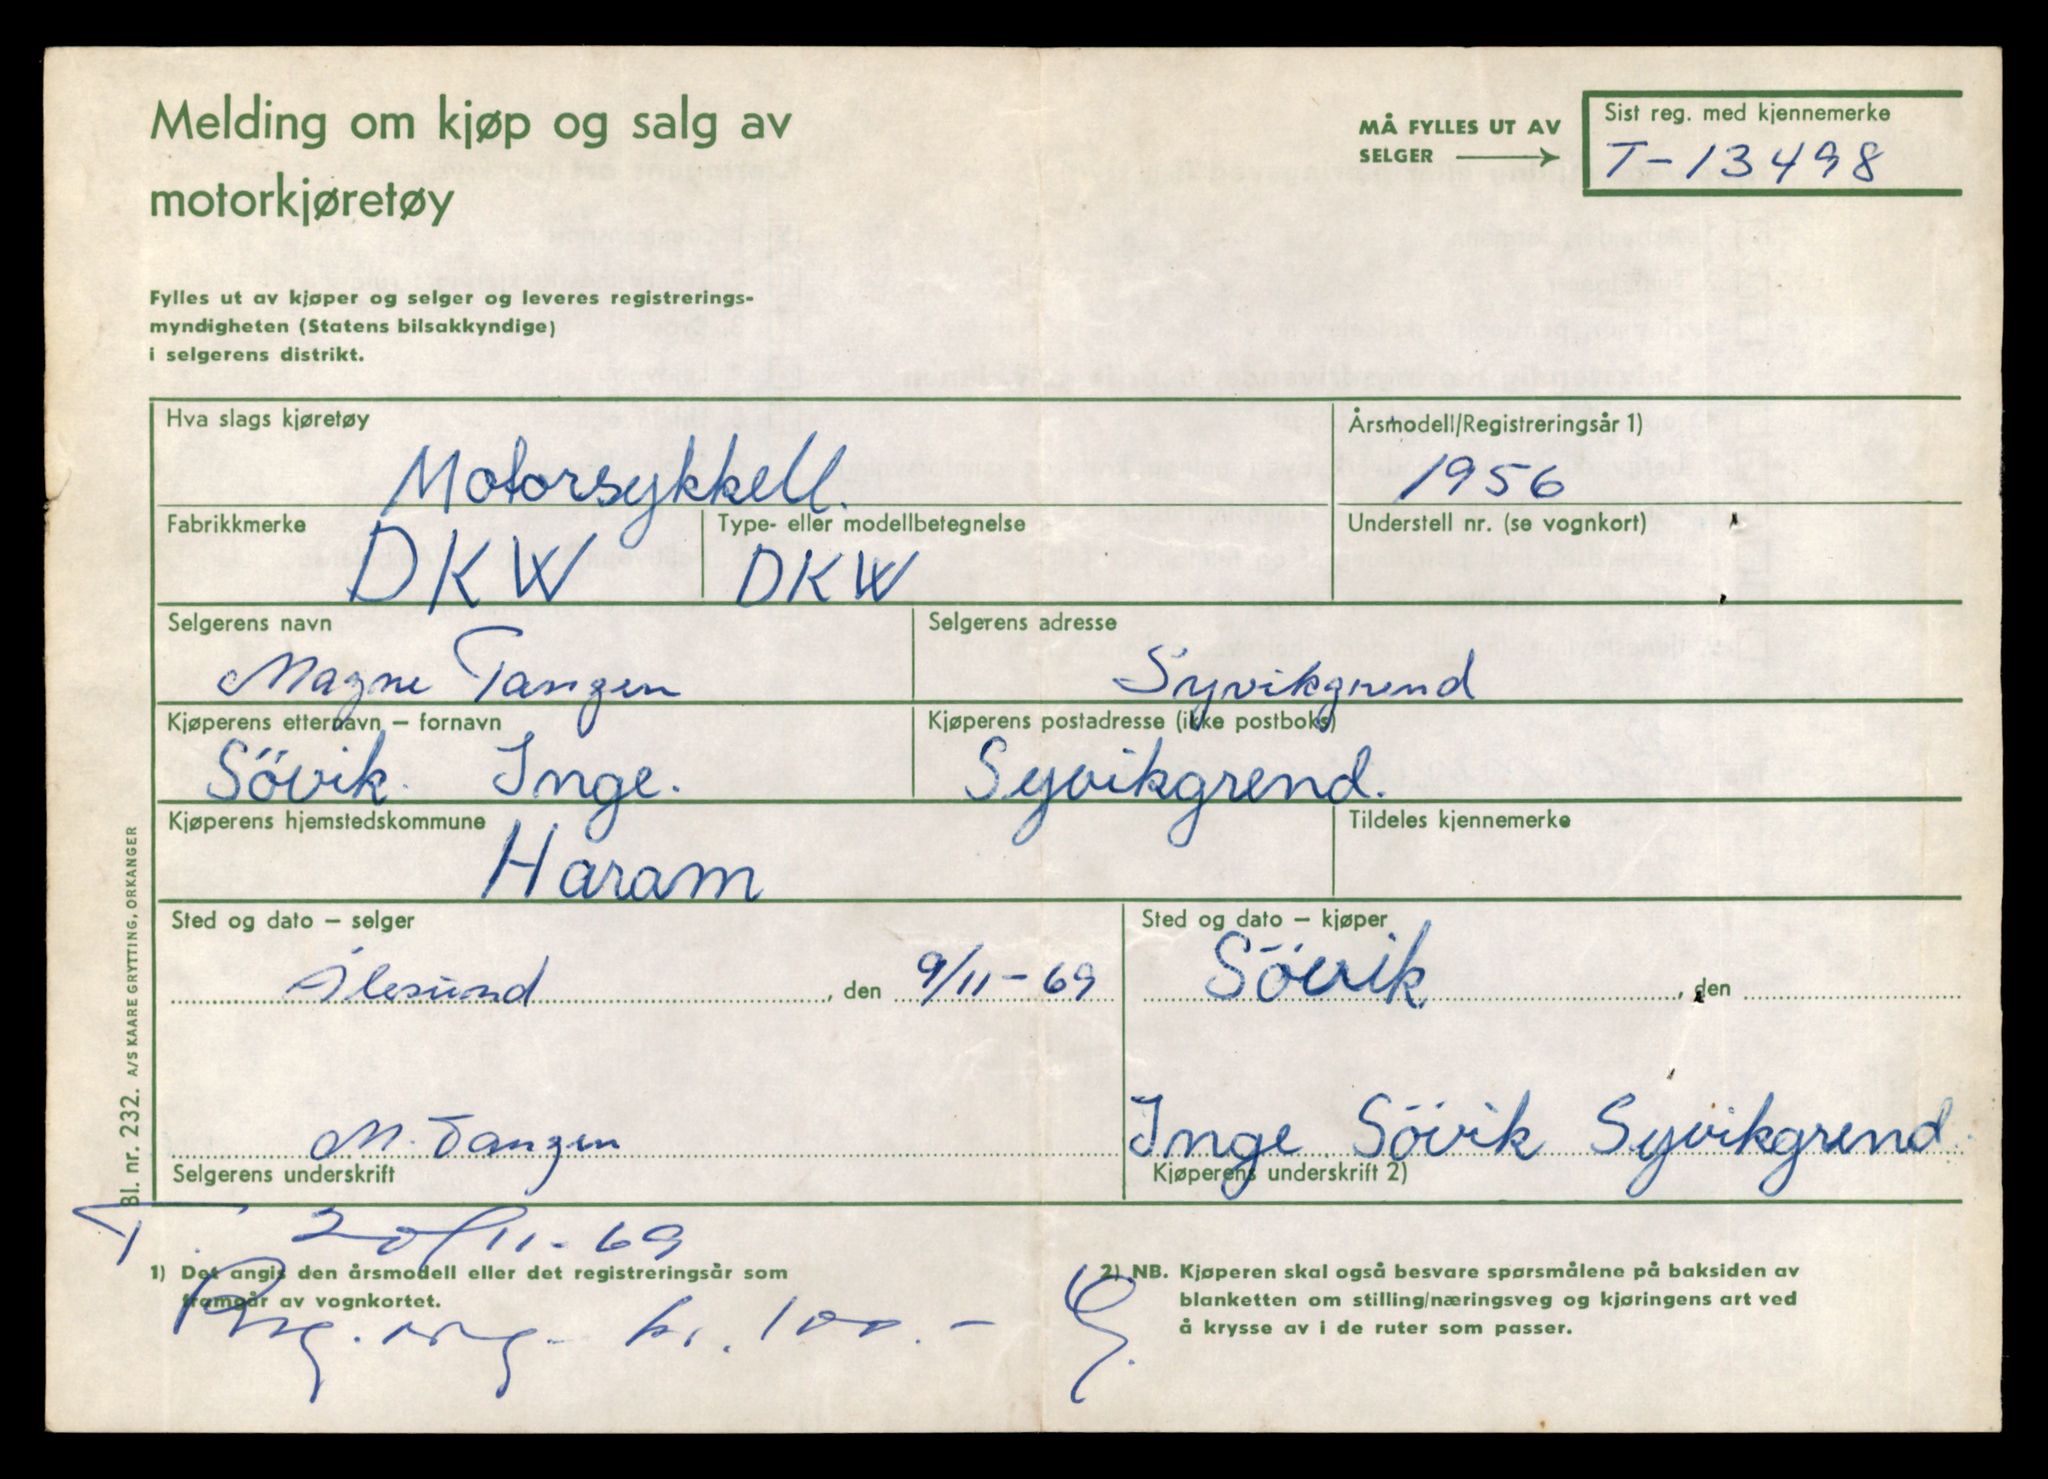 Melding om kjøp og salg av
motorkjøretøy
MÅ FYLLES UT AV
SELGER
Sist reg. med kjennemerke
T-13498
Fylles ut av kjøper og selger og leveres registrerings-
myndigheten (Statens bilsakkyndige)
i selgerens distrikt.
Hva slags kjøretøy
Motorsykkell.
Årsmodell/Registreringsår 1)
1956
Fabrikkmerke
DKW
Type- eller modellbetegnelse
DKW
Understell nr. (se vognkort)
Selgerens navn
Magne Tangen
Selgerens adresse
Syvikgrend
Kjøperens etternavn – fornavn
Sövik. Inge.
Kjøperens postadresse (ikke postboks)
Syvikgrend.
Kjøperens hjemstedskommune
Haram
Tildeles kjennemerke
Sted og dato – selger
Ålesund, den 9/11-69
Sted og dato – kjøper
Sövik, den
M. Tangen
Selgerens underskrift
Inge Sövik Syvikgrend.
Kjøperens underskrift 2)
Bl. nr. 232. A/S KAARE GRYTTING, ORKANGER
T. 20/11-69
1) Det angis den årsmodell eller det registreringsår som
framgår av vognkortet.
kr. 100.-
2) NB. Kjøperen skal også besvare spørsmålene på baksiden av
blanketten om stilling/næringsveg og kjøringens art ved
å krysse av i de ruter som passer.